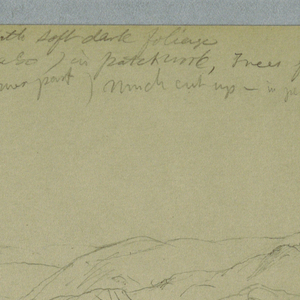 soft dark foliage
also) in patchwork, Trees
part) Much cut up — in